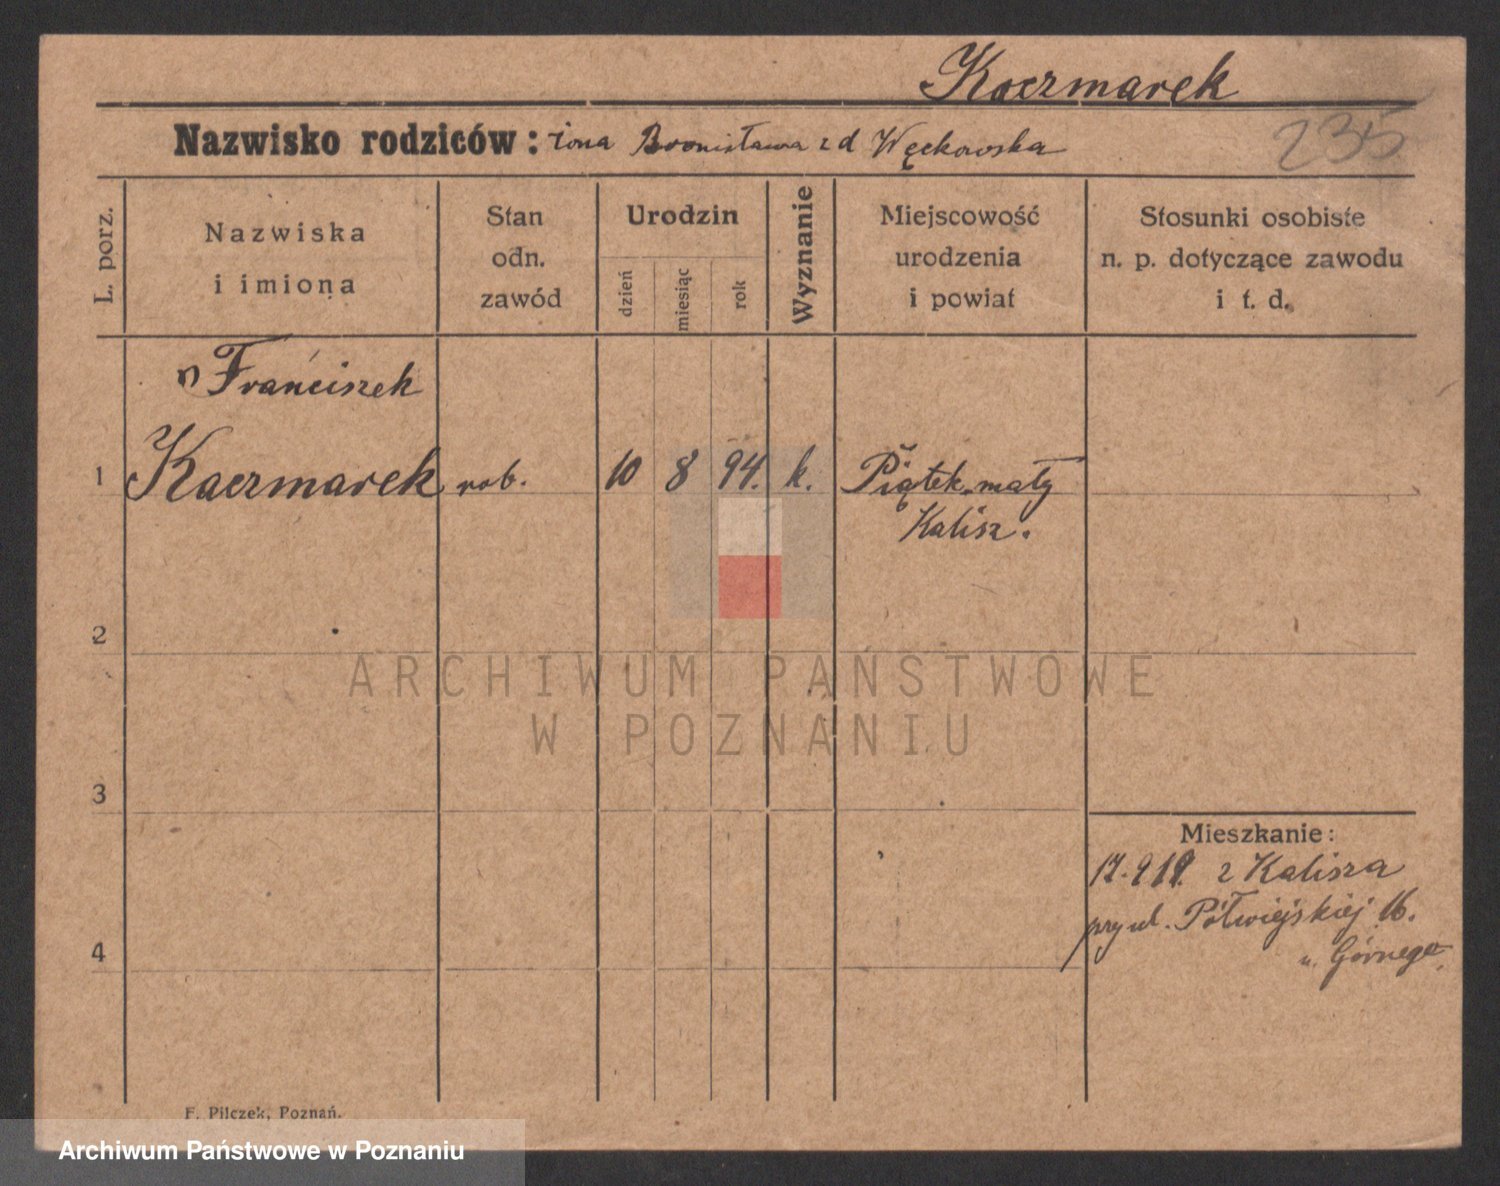 Kaczmarek
Nazwisko rodziców: żona Bronisława z d Węckowska
235
L. porz.
Nazwiska
i imiona
Stan
odn.
zawód
Urodzin
dzień
miesiąc
rok
Wyznanie
Miejscowość
urodzenia
i powiat
Stosunki osobiste
n. p. dotyczące zawodu
i t. d.
Franciszek
1 Kaczmarek rob. 10 8 94. k. Piątek mały
Kalisz.
2
ARCHIWUM PAŃSTWOWE
W POZNANIU
3
Mieszkanie:
17.9 19. z Kalisza
przy ul. Półwiejskiej 16.
u. Górnego
4
F. Pilczek, Poznań.
Archiwum Państwowe w Poznaniu